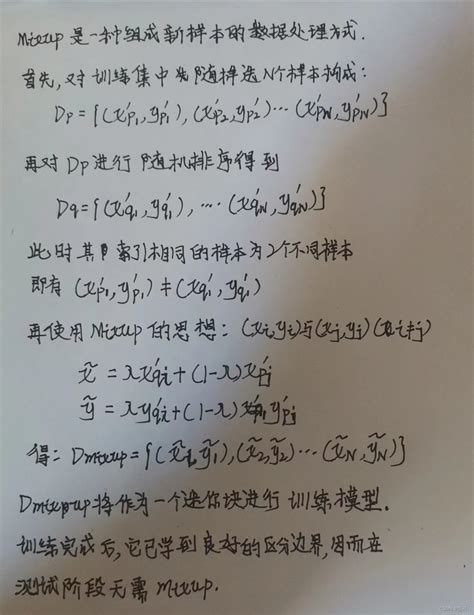 Mixup 是一种组成新样本的数据处理方式.
首先,对训练集中先随样选N个样本构成:
Dp = {(x'p1, y'p1), (x'p2, y'p2)⋯(x'pN, y'pN)}
再对 Dp 进行随机排序得到
Dq = {(x'q1, y'q1), ⋯ (x'qN, y'qN)}
此时其索引相同的样本为2个不同样本
即有 (x'p1, y'p1) ≠ (x'q1, y'q1)
再使用Mixup的思想: (xi, yi)与(xj, yj) (i≠j)
x̃ = λx'qi + (1-λ)x'pj
ỹ = λy'qi + (1-λ)y'pj
得: Dmixup = {(x̃1, ỹ1), (x̃2, ỹ2)⋯(x̃N, ỹN)}
Dmixup将作为一个迷你块进行训练模型.
训练完成后,它已学到良好的区分边界,因而在
测试阶段无需 mixup.